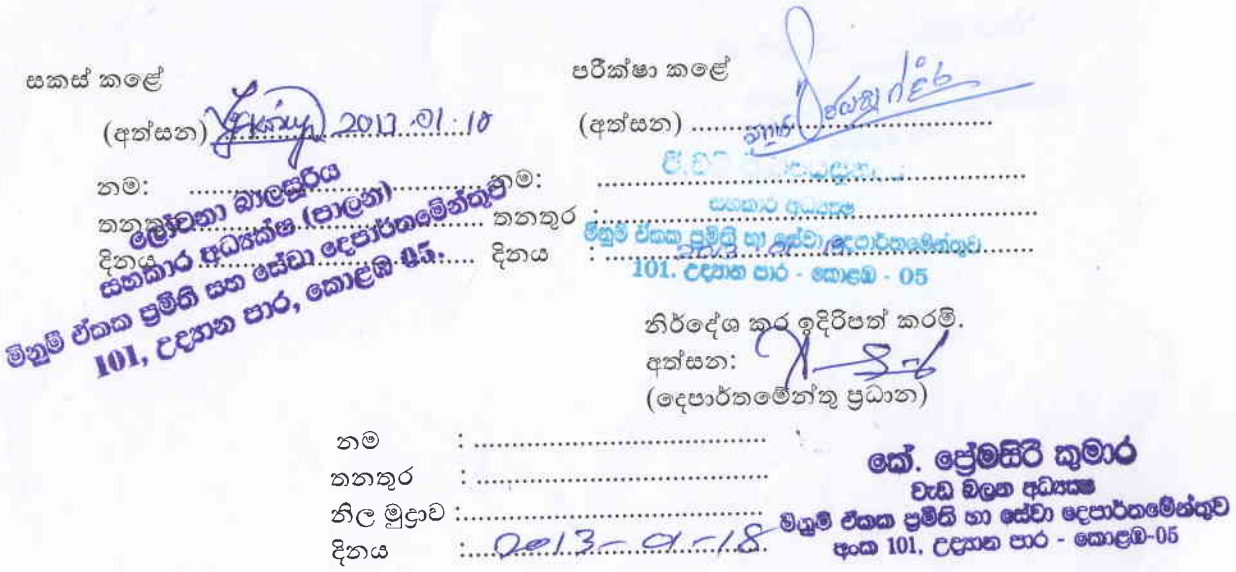 සකස් කළේ
(අත්සන) 2013.01.18
නම: ........................................
තනතුර ........................................
දිනය ........................................
ලෝචනා බාලසූරිය
සහකාර අධ්‍යක්ෂ (පාලන)
මිනුම් ඒකක ප්‍රමිති සහ සේවා දෙපාර්තමේන්තුව
101, උද්‍යාන පාර, කොළඹ 05.
පරීක්ෂා කළේ
(අත්සන) ........................................
නම: ........................................
තනතුර : ........................................
දිනය : ........................................
සහකාර අධ්‍යක්ෂ
මිනුම් ඒකක ප්‍රමිති හා සේවා දෙපාර්තමේන්තුව
101, උද්‍යාන පාර - කොළඹ - 05
නිර්දේශ කර ඉදිරිපත් කරමි.
අත්සන:
(දෙපාර්තමේන්තු ප්‍රධාන)
නම : ........................................
තනතුර : ........................................
නිල මුද්‍රාව : ........................................
දිනය : 2013-01-18
කේ. ප්‍රේමසිරි කුමාර
වැඩ බලන අධ්‍යක්ෂ
මිනුම් ඒකක ප්‍රමිති හා සේවා දෙපාර්තමේන්තුව
අංක 101, උද්‍යාන පාර - කොළඹ-05